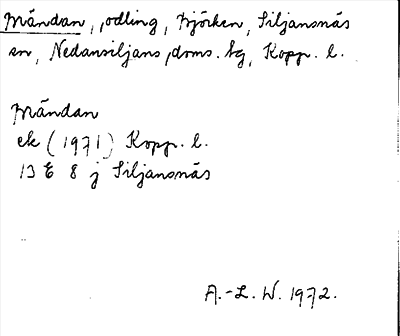 Mändan, odling, Björken, Siljansnäs
sn, Nedansiljans doms. hg, Kopp. l.
Mändan
ek (1971) Kopp. l.
13 E 8 j Siljansnäs
A.-L. W. 1972.